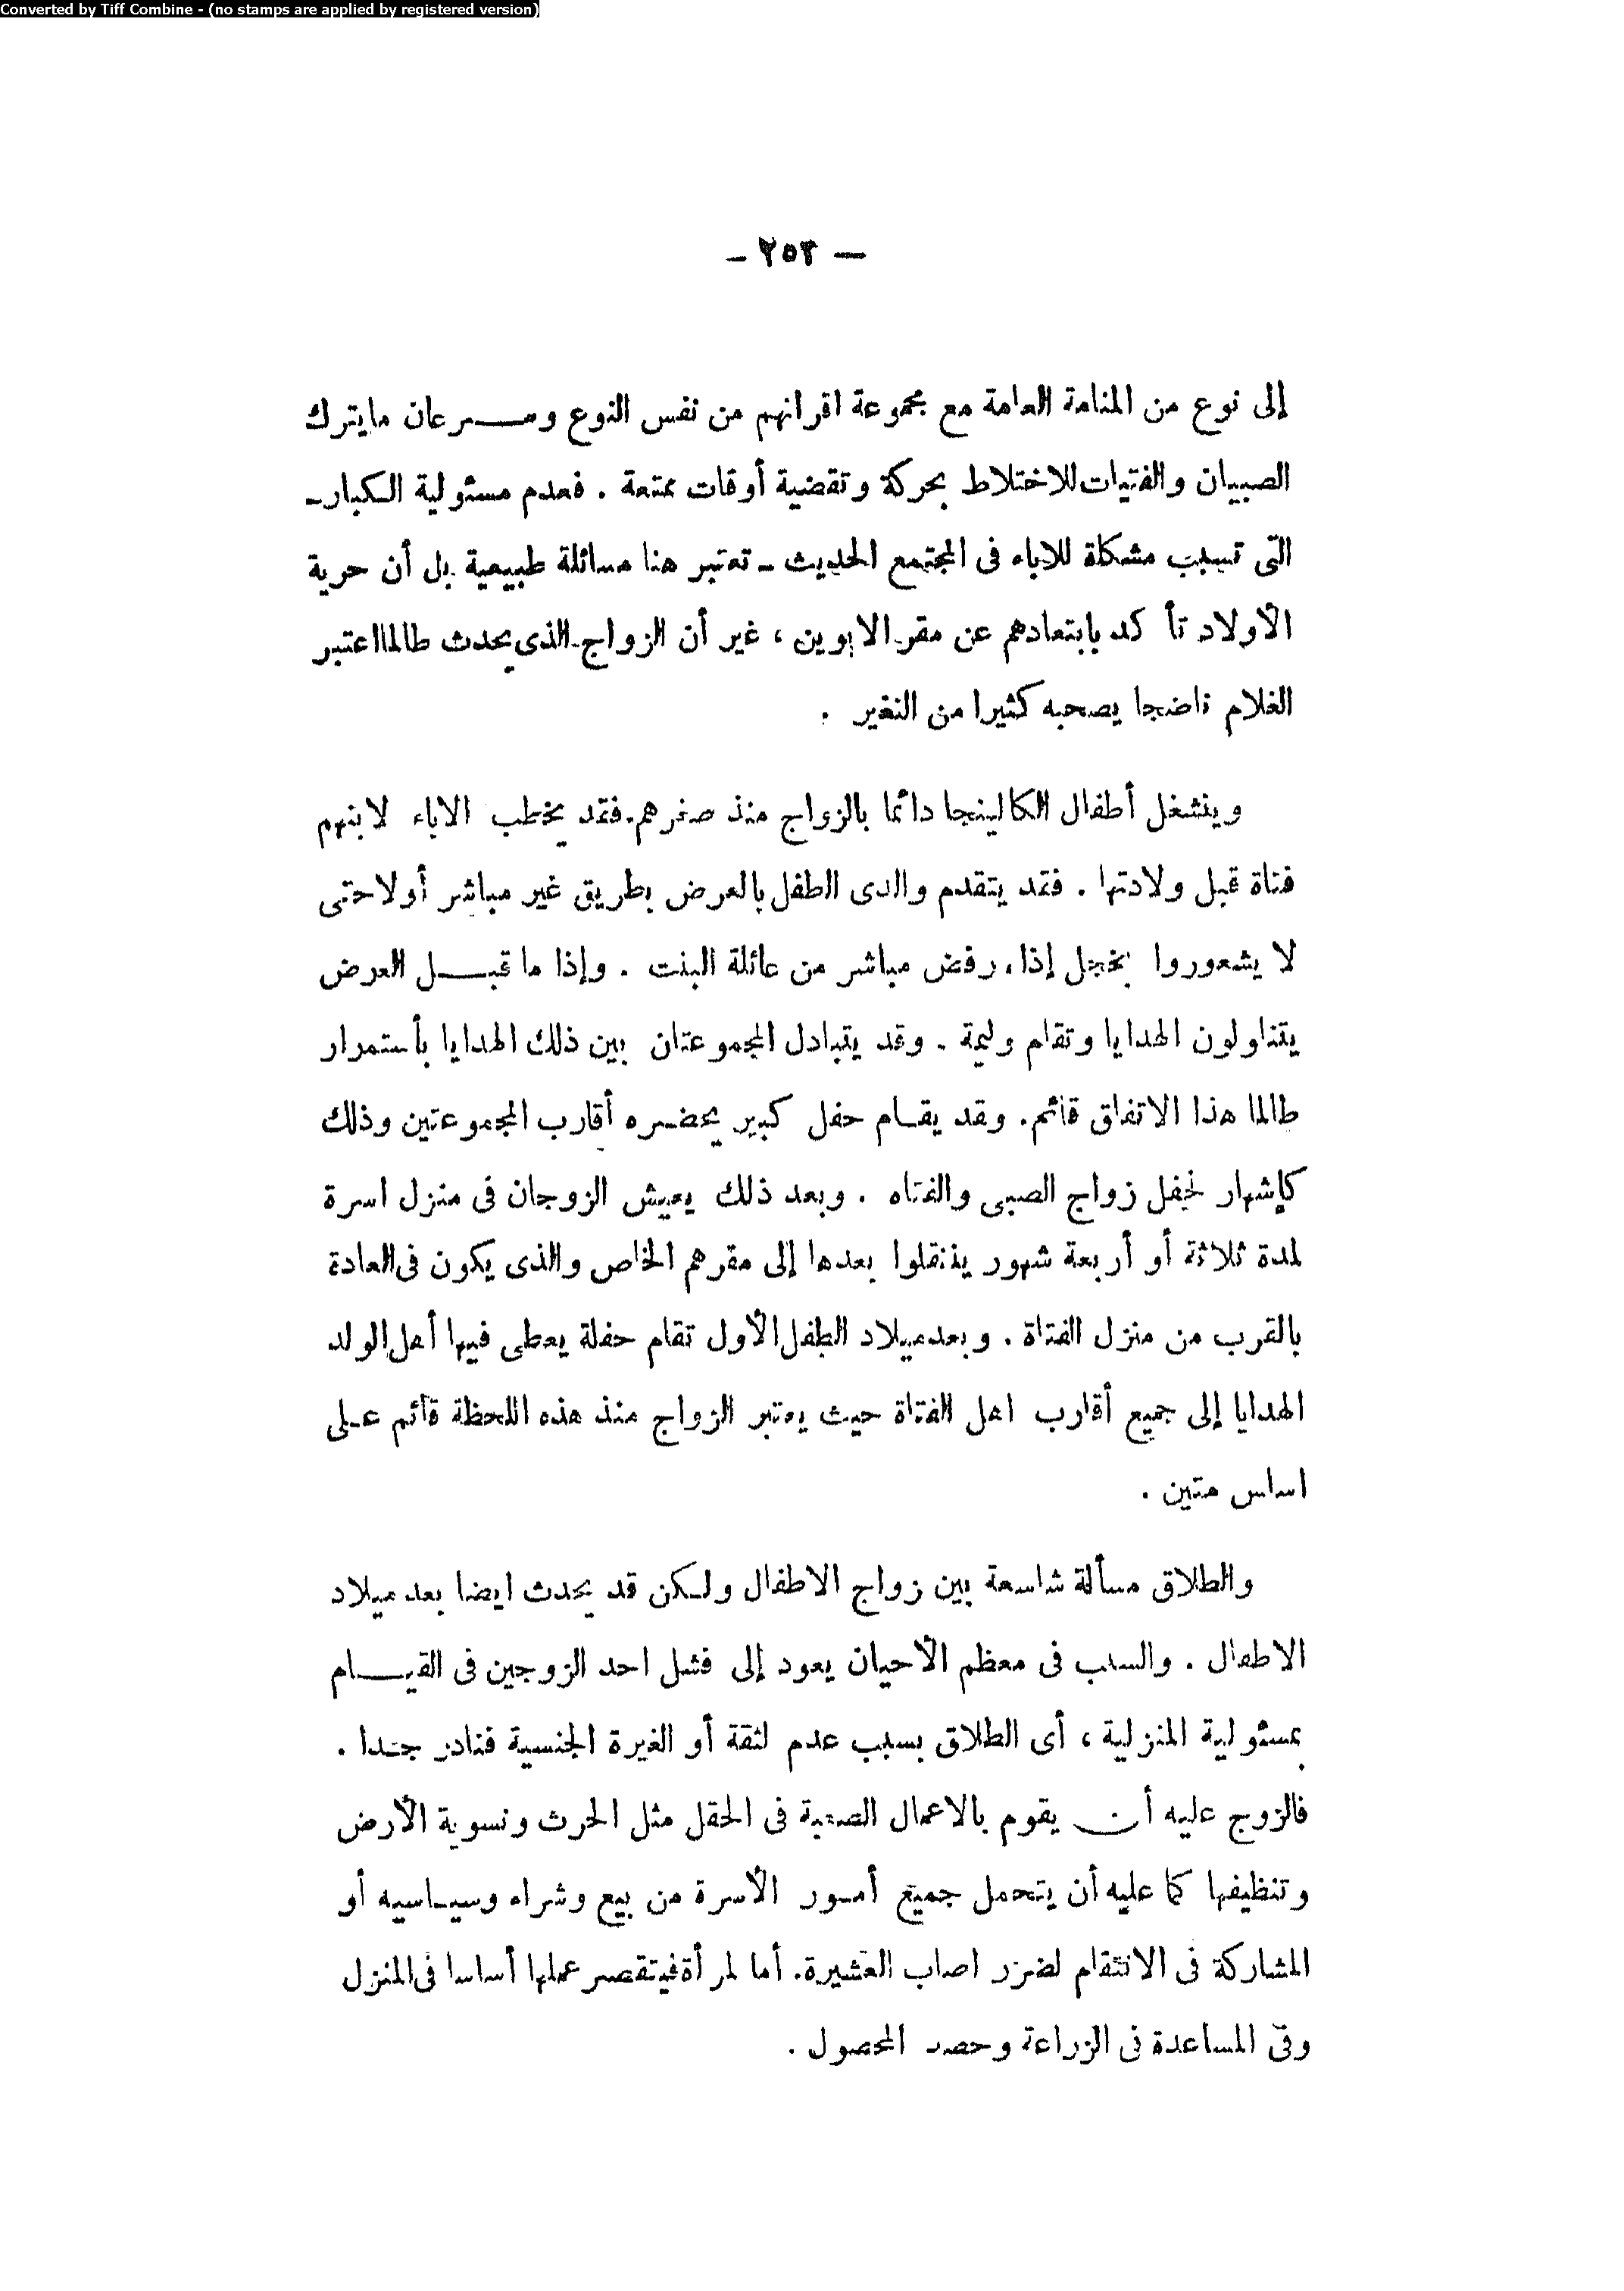 Converted by Tiff Combine - (no stamps are applied by registered version)
— ٢٥٣ —
إلى نوع من المنامة العامة مع مجموعة اقرانهم من نفس النوع وسرعان مايترك
الصبيان والفتيات للاختلاط بحركة وتقضية أوقات ممتعة . فعدم مسئولية الكبار ـ
التى تسبب مشكلة للاباء فى المجتمع الحديث ـ تعتبر هنا مسائلة طبيعية بل أن حرية
الأولاد تأ كد بابتعادهم عن مقر الابوين ، غير أن الزواج الذى يحدث طالمااعتبر
الغلام ناضجا يصحبه كثيرا من التغير .
وينشغل أطفال الكالينجا دائما بالزواج منذ صغرهم فقد يخطب الاباء لابنهم
فتاة قبل ولادتها . فقد يتقدم والدى الطفل بالعرض بطريق غير مباشر أولا حتى
لا يشعوروا بخجل إذا رفض مباشر من عائلة البنت . وإذا ما قبل العرض
يتناولون الهدايا وتقام وليمة . وقد يتبادل المجموعتان بين ذلك الهدايا بأستمرار
طالما هذا الاتفاق قائم . وقد يقام حفل كبير يحضره أقارب المجموعتين وذلك
كإشهار لحفل زواج الصبى والفتاه . وبعد ذلك يعيش الزوجان فى منزل اسرة
لمدة ثلاثة أو أربعة شهور ينتقلوا بعدها إلى مقرهم الخاص والذى يكون فى العادة
بالقرب من منزل الفتاة . وبعد ميلاد الطفل الأول تقام حفلة يعطى فيها أهل الولد
الهدايا إلى جميع أقارب اهل الفتاة حيث يعتبر الزواج منذ هذه اللحظة قائم على
اساس متين .
والطلاق مسألة شاسعة بين زواج الاطفال ولكن قد يحدث ايضا بعد ميلاد
الاطفال . والسبب فى معظم الأحيان يعود إلى فشل احد الزوجين فى القيام
بمسئولية المنزلية ، أى الطلاق بسبب عدم لثقة أو الغيرة الجنسية فنادر جدا .
فالزوج عليه أن يقوم بالاعمال الصعبة فى الحقل مثل الحرث وتسوية الأرض
وتنظيفها كما عليه أن يتحمل جميع أمور الأسرة من بيع وشراء وسياسيه أو
المشاركة فى الانتقام لضرر اصاب العشيرة. أما لمرأة فيتقصر عملها أساسا فى المنزل
وفى المساعدة فى الزراعة وحصد المحصول .